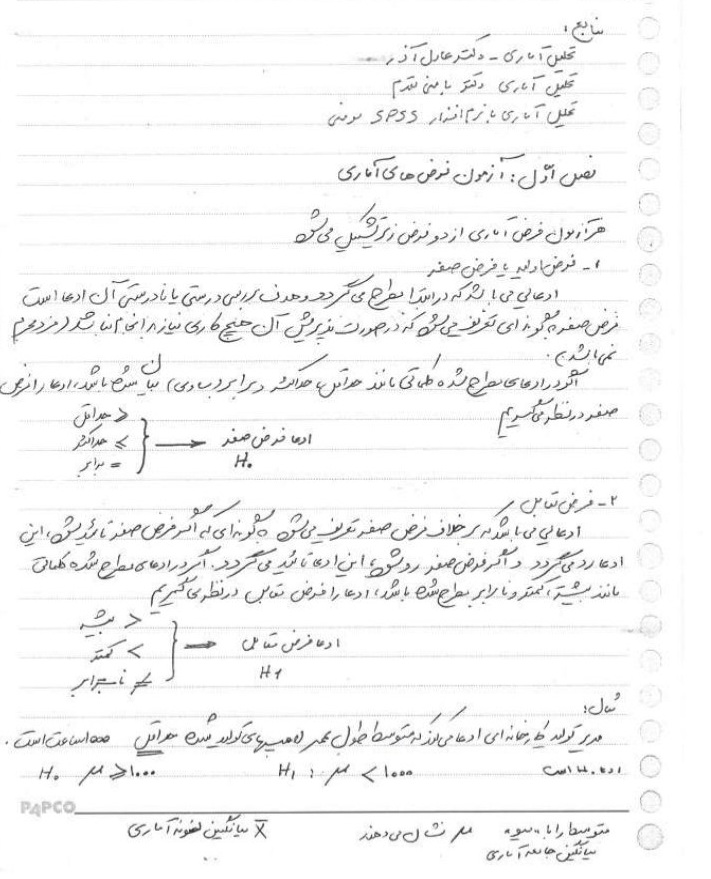 منابع:
تحلیل آماری - دکتر عادل آذر
تحلیل آماری دکتر
تحلیل آماری با نرم افزار SPSS مومنی
فصل اول: آزمون فرض های آماری
هر آزمون فرض آماری از دو فرض زیر تشکیل می شود
۱- فرض اولیه یا فرض صفر
ادعایی می باشد که در ابتدا مطرح می گردد و هدف بررسی درستی یا نادرستی آن ادعا است
فرض صفر به گونه ای تعریف می شود که در صورت پذیرش آن هیچ کاری نیاز به انجام نباشد (فرد مجرم
نمی باشد).
اگر در ادعای مطرح شده کلماتی مانند حداقل یا حداکثر و برابر (مساوی) بیان شده باشد، ادعا را فرض
صفر در نظر می گیریم
≥ حداقل
≤ حداکثر
= برابر
ادعا فرض صفر
H₀
۲- فرض مقابل
ادعایی می باشد که بر خلاف فرض صفر تعریف می شود به گونه ای که اگر فرض صفر تائید شود، این
ادعا رد می گردد و اگر فرض صفر رد شود، این ادعا تائید می گردد. اگر در ادعای مطرح شده کلماتی
مانند بیشتر، کمتر و نابرابر مطرح شده باشد، ادعا را فرض مقابل در نظر می گیریم
> بیشتر
< کمتر
≠ نابرابر
ادعا فرض مقابل
H1
مثال:
مدیر تولید کارخانه ای ادعا می کند که متوسط طول عمر لامپهای تولید شده حداقل ۱۰۰۰ ساعت است.
H₀ μ ≥ ۱۰۰۰ H₁ : μ < ۱۰۰۰ ادعا H₀ است
PAPCO
متوسط را با μ نشان می دهند X̄ میانگین نمونه آماری
میانگین جامعه آماری